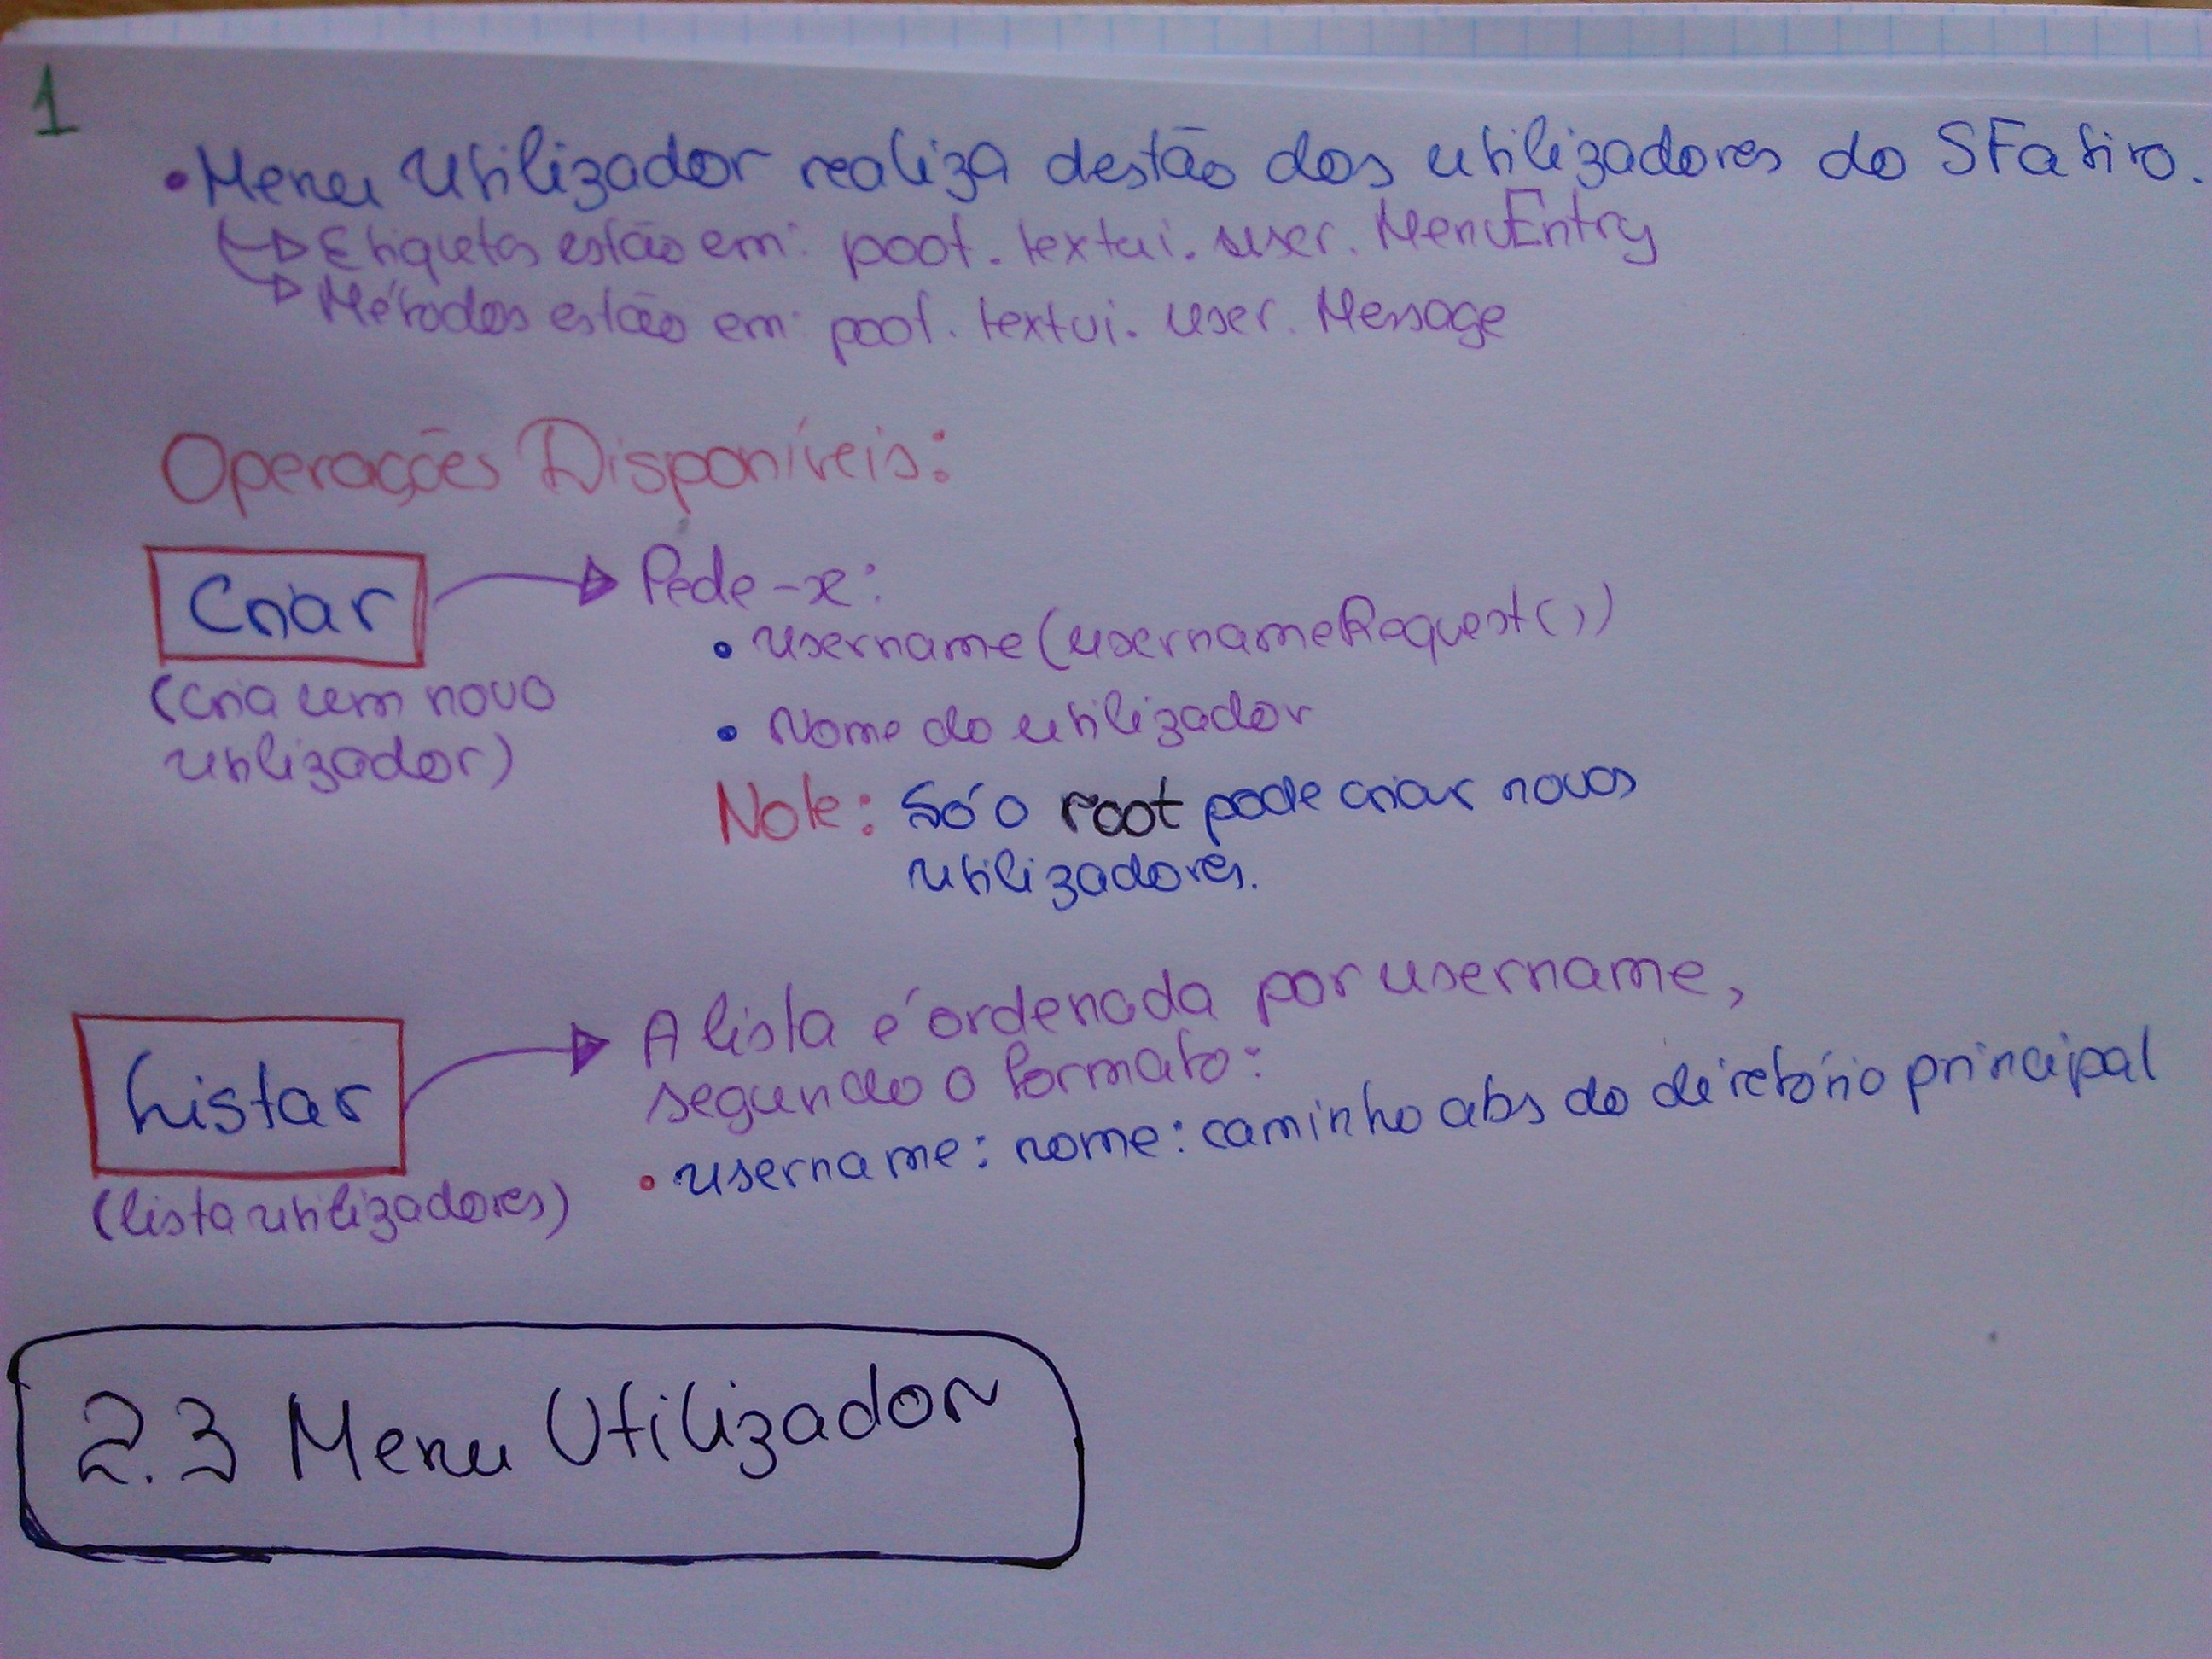 1
• Menu Utilizador realiza destão dos utilizadores do SFativo.
Etiquetas estão em: poof.textui.user.MenuEntry
Métodos estão em: poof.textui.user.Message
Operações Disponíveis:
Criar
(cria um novo
utilizador)
Pede-se:
• username (usernameRequest())
• Nome do utilizador
Note: Só o root pode criar novos
utilizadores.
Listar
(lista utilizadores)
A lista é ordenada por username,
segundo o formato:
• username: nome: caminho abs do diretório principal
2.3 Menu Utilizador